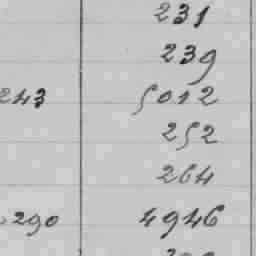 231
239
243 5012
252
264
290 4946